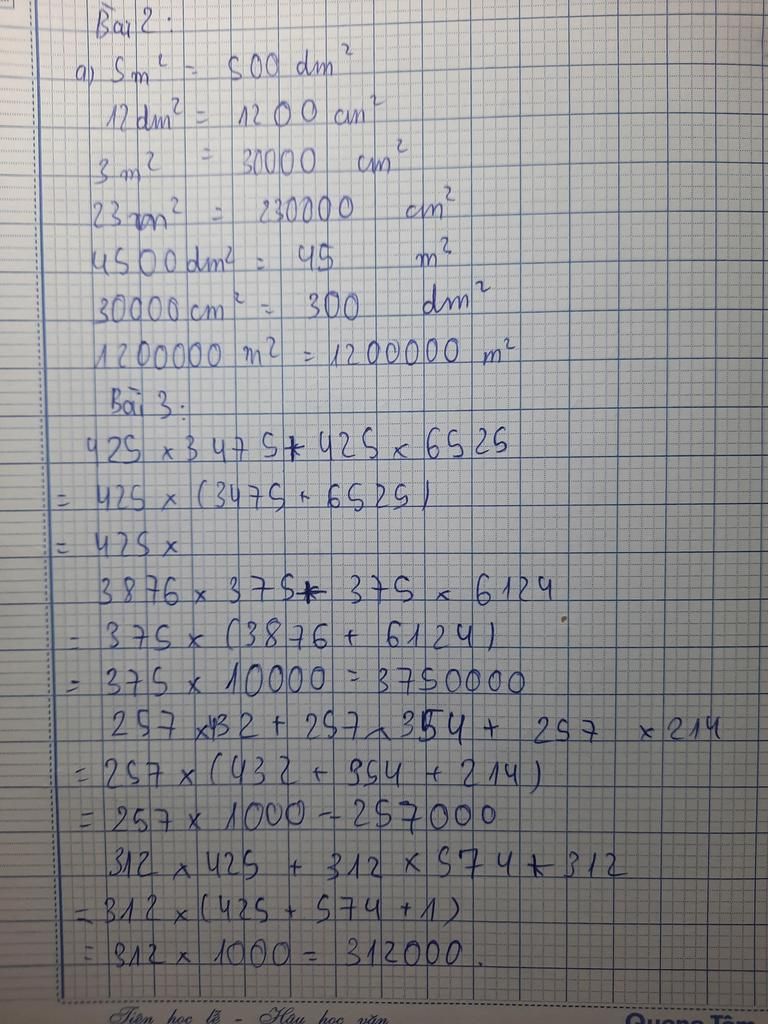 Bài 2:
a) 5m² = 500 dm²
12dm² = 1200 cm²
3m² = 30000 cm²
23m² = 230000 cm²
4500dm² = 45 m²
30000cm² = 300 dm²
1200000 m² = 1200000 m²
Bài 3:
425 x 3475 + 425 x 6525
= 425 x (3475 + 6525)
= 425 x
3876 x 375 + 375 x 6124
= 375 x (3876 + 6124)
= 375 x 10000 = 3750000
257 x 432 + 257 x 354 + 257 x 214
= 257 x (432 + 354 + 214)
= 257 x 1000 = 257000
312 x 425 + 312 x 574 + 312
= 312 x (425 + 574 + 1)
= 312 x 1000 = 312000.
Tiên học lễ - Hậu học văn